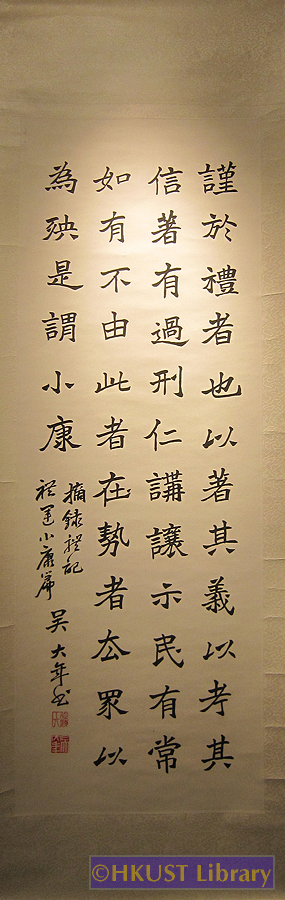 謹於禮者也以著其義以考其
信著有過刑仁講讓示民有常
如有不由此者在勢者厺眾以
為殃是謂小康
摘錄禮記
禮運小康篇
吳大年書
©HKUST Library